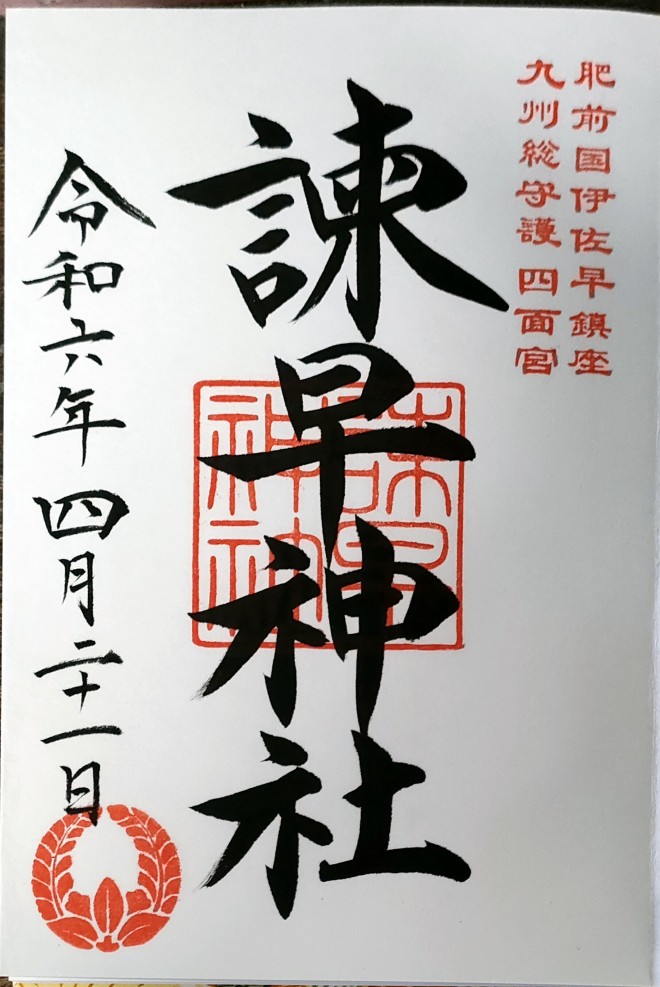 肥前国伊佐早鎮座
九州総守護 四面宮
諫早神社
令和六年四月二十一日